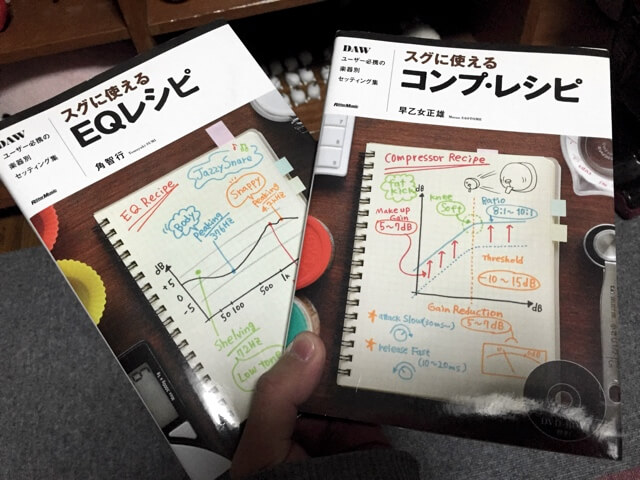 DAW
ユーザー必携の
楽器別
セッティング集
スグに使える
EQレシピ
角智行
RittorMusic
EQ Recipe
Jazzy Snare
Body
Peaking
376Hz
Snappy
Peaking
dB
+5
-5
50
100
500
1k
Shelving
72Hz
DAW
ユーザー必携の
楽器別
セッティング集
スグに使える
コンプ・レシピ
早乙女正雄
RittorMusic
Compressor Recipe
dB
Make up
Gain
5~7dB
Knee
Soft
Ratio
8:1~10:1
Threshold
-10~15dB
dB
Gain Reduction
5~7dB
Attack Slow (50ms~)
Release Fast
(10~20ms)